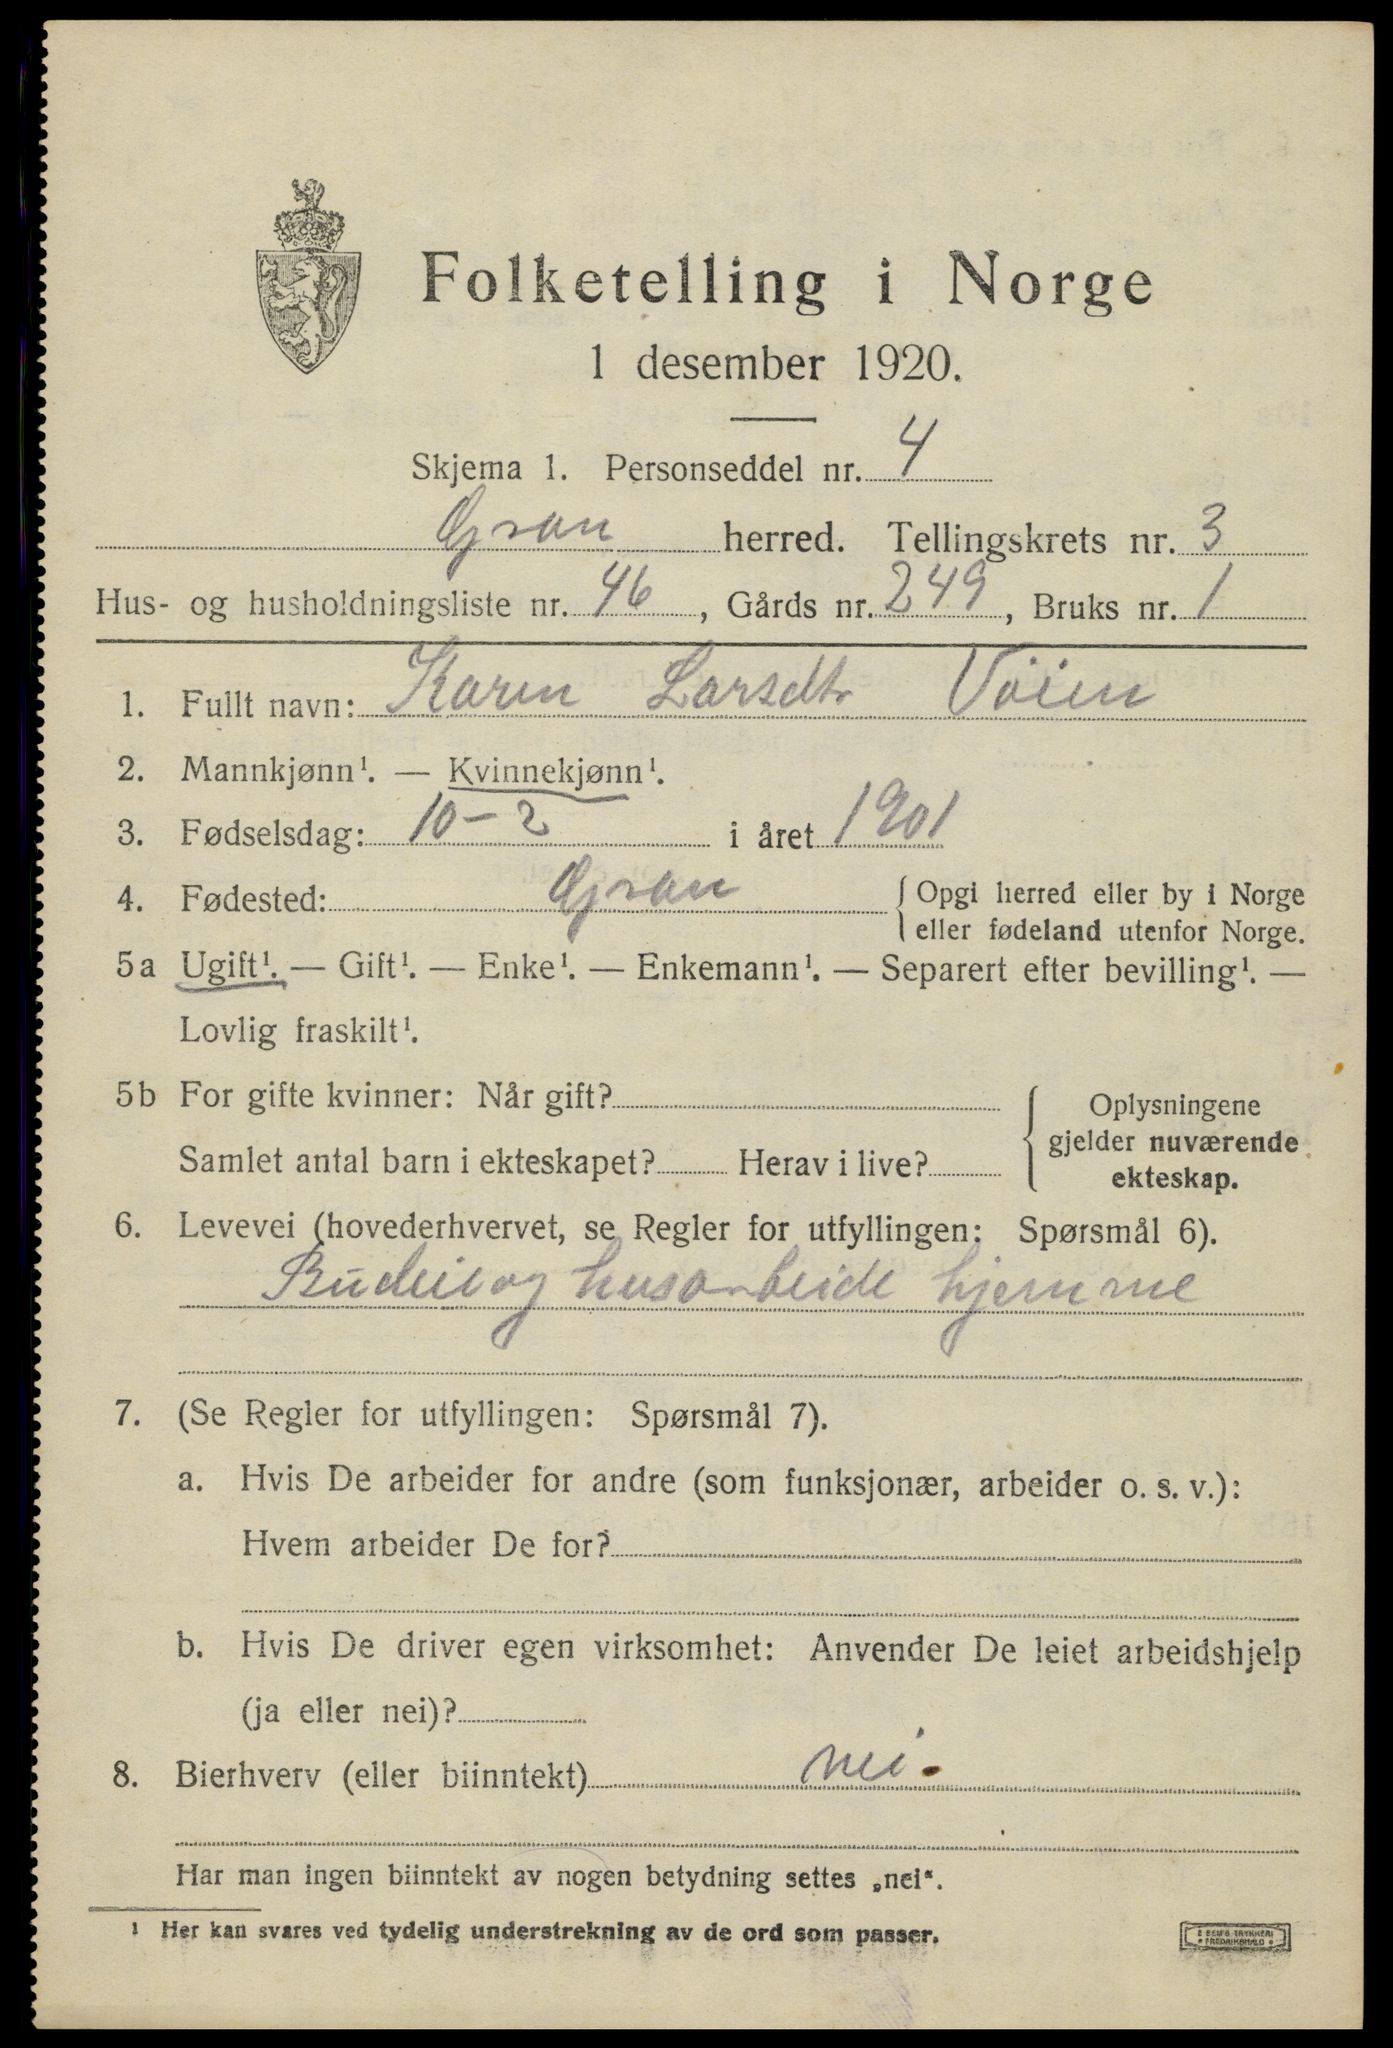 Folketelling i Norge
1 desember 1920.
Skjema 1. Personseddel nr. 4
Gran herred. Tellingskrets nr. 3
Hus- og husholdningsliste nr. 46, Gårds nr. 249, Bruks nr. 1
1. Fullt navn: Karen Larsdtr Vöien
2. Mannkjønn¹. — Kvinnekjønn¹.
3. Fødselsdag: 10-2 i året 1901
4. Fødested: Gran { Opgi herred eller by i Norge
eller fødeland utenfor Norge.
5a Ugift¹. — Gift¹. — Enke¹. — Enkemann¹. — Separert efter bevilling¹. —
Lovlig fraskilt¹.
5b For gifte kvinner: Når gift? { Oplysningene
gjelder nuværende
Samlet antal barn i ekteskapet? Herav i live?
ekteskap.
6. Levevei (hovederhvervet, se Regler for utfyllingen: Spørsmål 6).
Budeie og husarbeide hjemme
7. (Se Regler for utfyllingen: Spørsmål 7).
a. Hvis De arbeider for andre (som funksjonær, arbeider o. s. v.):
Hvem arbeider De for?
b. Hvis De driver egen virksomhet: Anvender De leiet arbeidshjelp
(ja eller nei)?
8. Bierhverv (eller biinntekt) nei.
Har man ingen biinntekt av nogen betydning settes „nei“.
¹ Her kan svares ved tydelig understrekning av de ord som passer.
TRYKKERI
FREDRIKSHALD